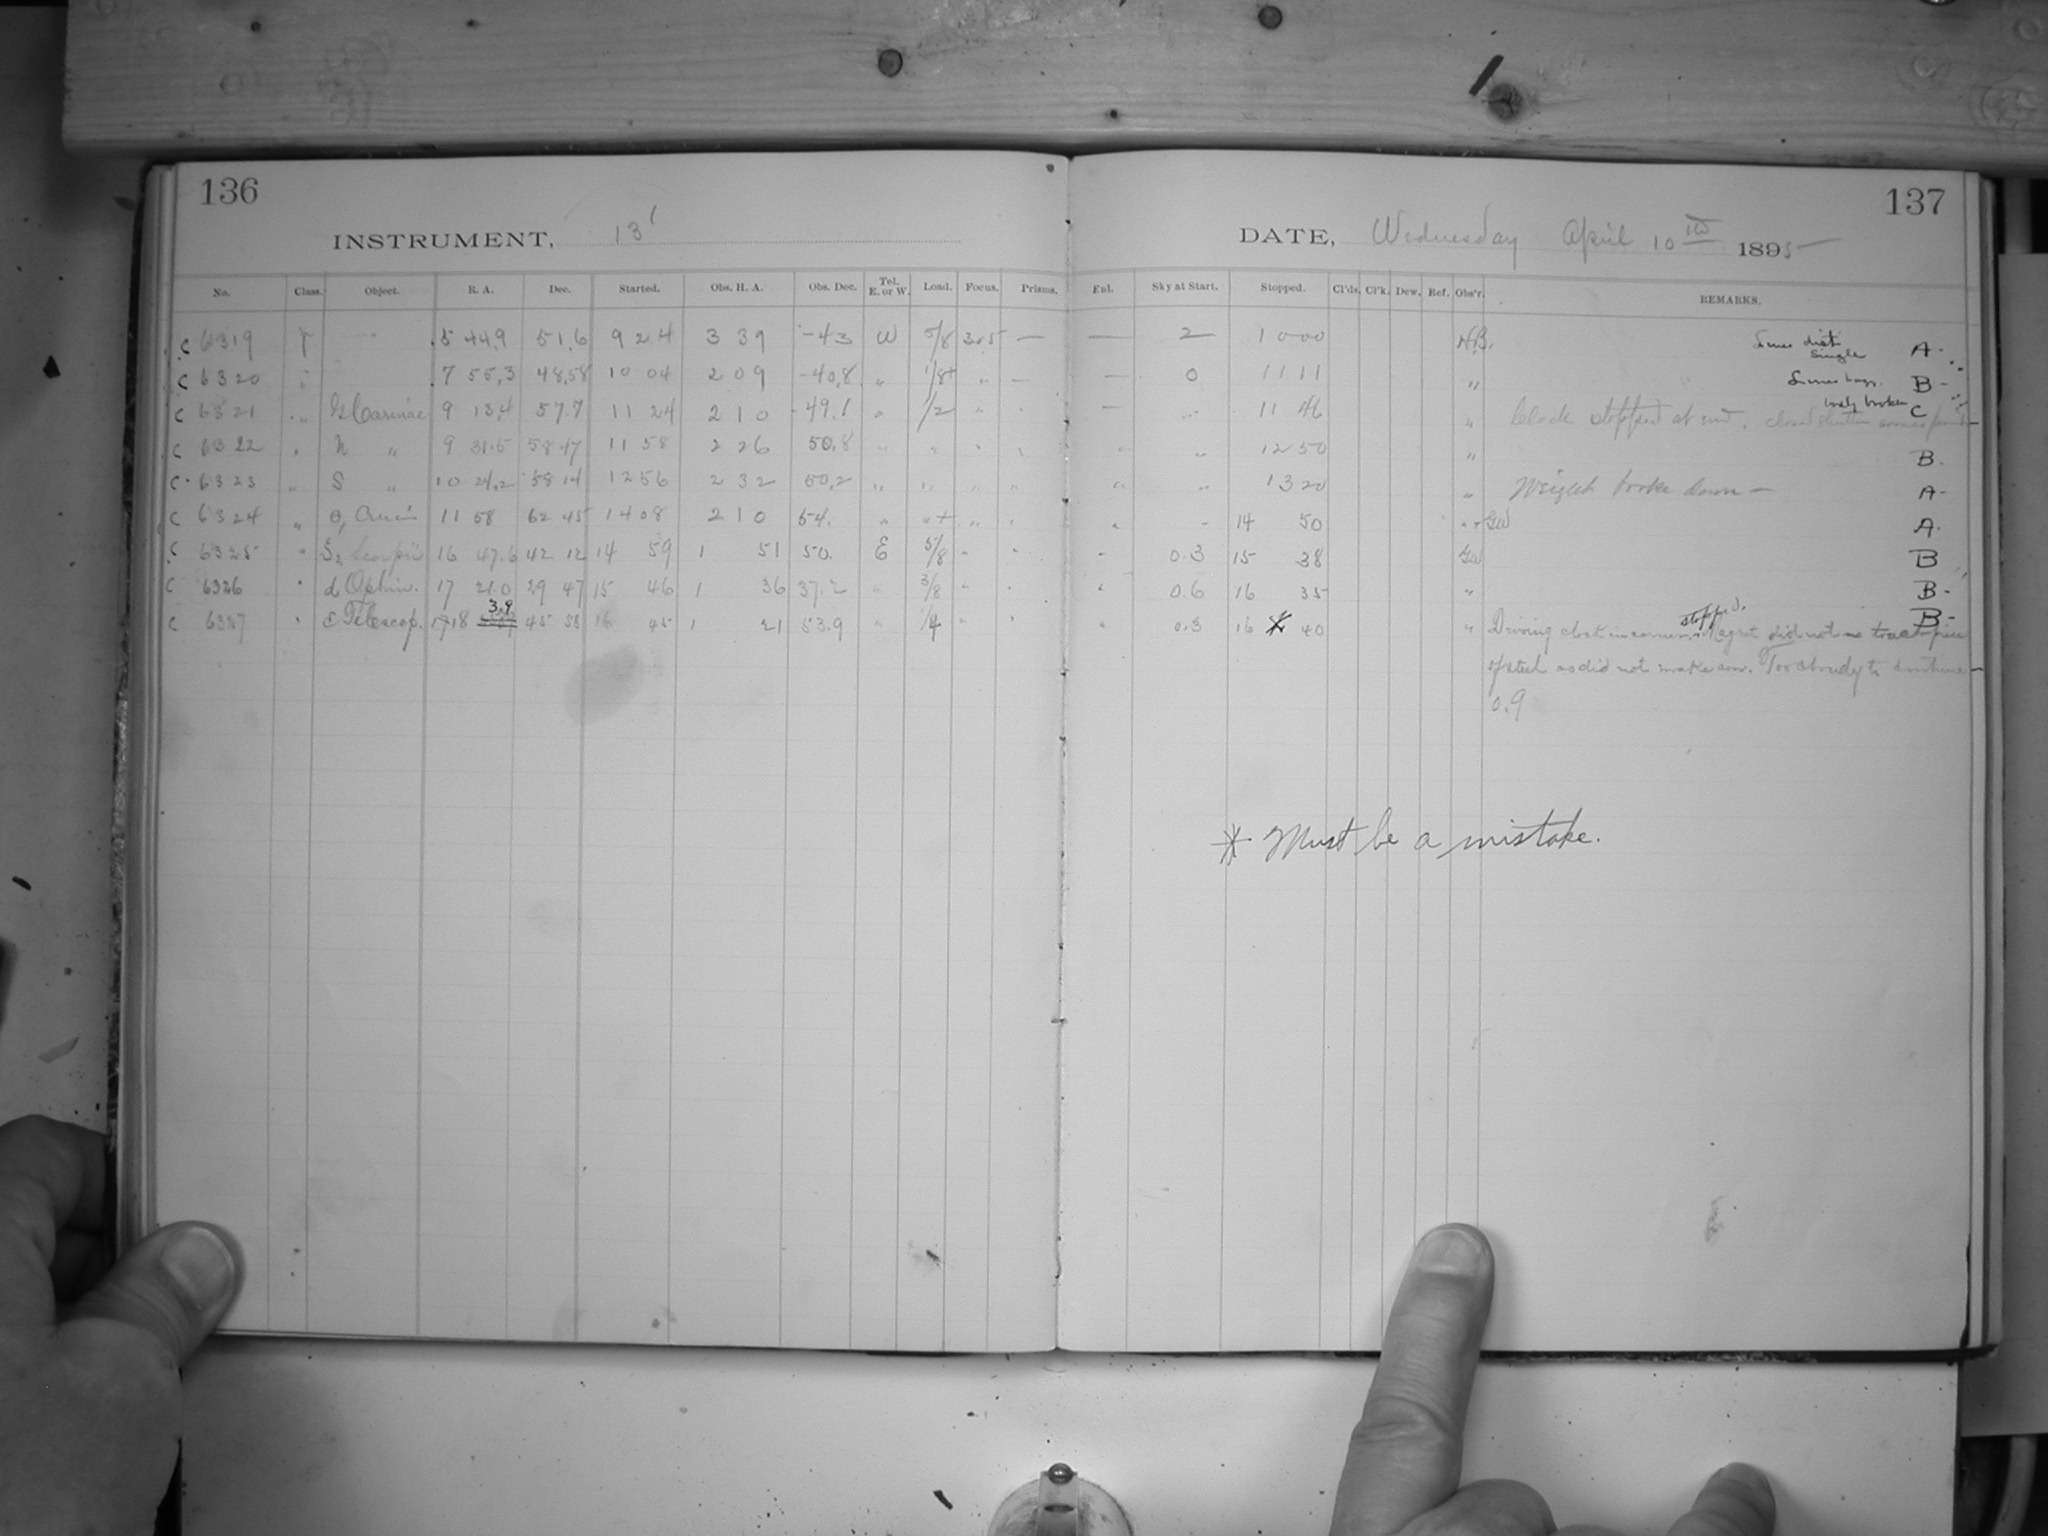 136
137
INSTRUMENT, 13'
DATE, Wednesday April 10th 1895
No. Class. Object. R. A. Dec. Started. Obs. H. A. Obs. Dec. Tel. E. or W. Load. Focus. Prisms. Enl. Sky at Start. Stopped. Cl'ds. Cl'k. Dew. Ref. Obs'r. REMARKS.
C 6319 5 44.9 51.6 9 24 3 39 -43 W 5/8 — — 2 10 00 A-
C 6320 7 55.3 48.58 10 04 2 09 -40.8 " 1/8+ " — — 0 11 11 " B-
C 6321 " Carinae 9 13.4 57.7 11 24 2 10 -49.1 " 1/2 " " — 11 46 " Clock stopped at end. closed shutter C
C 6322 " " 9 31.5 11 58 2 26 50.8 " " " " " " 12 50 " B.
C 6323 " S " 10 24.2 58 14 12 56 2 32 50.2 " " " " " " 13 20 " Weight broke down — A-
C 6324 " Crucis 11 58 62 45 14 08 2 10 54. " "+ " " " - 14 50 A.
C 6325 " Scorpii 16 47.6 42 12 14 59 1 51 50. E 5/8 " " " 0.3 15 38 B
C 6326 " d Ophiu. 17 21.0 29 47 15 46 1 36 37.2 " 3/8 " " " 0.6 16 35 " B-
C 6327 " Telescop. 18 3.9 45 58 16 45 1 21 53.9 " 1/4 " " " 0.3 16 * 40 " Driving clock stopped. Magnet did not B-
of steel as did not make Too cloudy to continue—
0.9
* Must be a mistake.